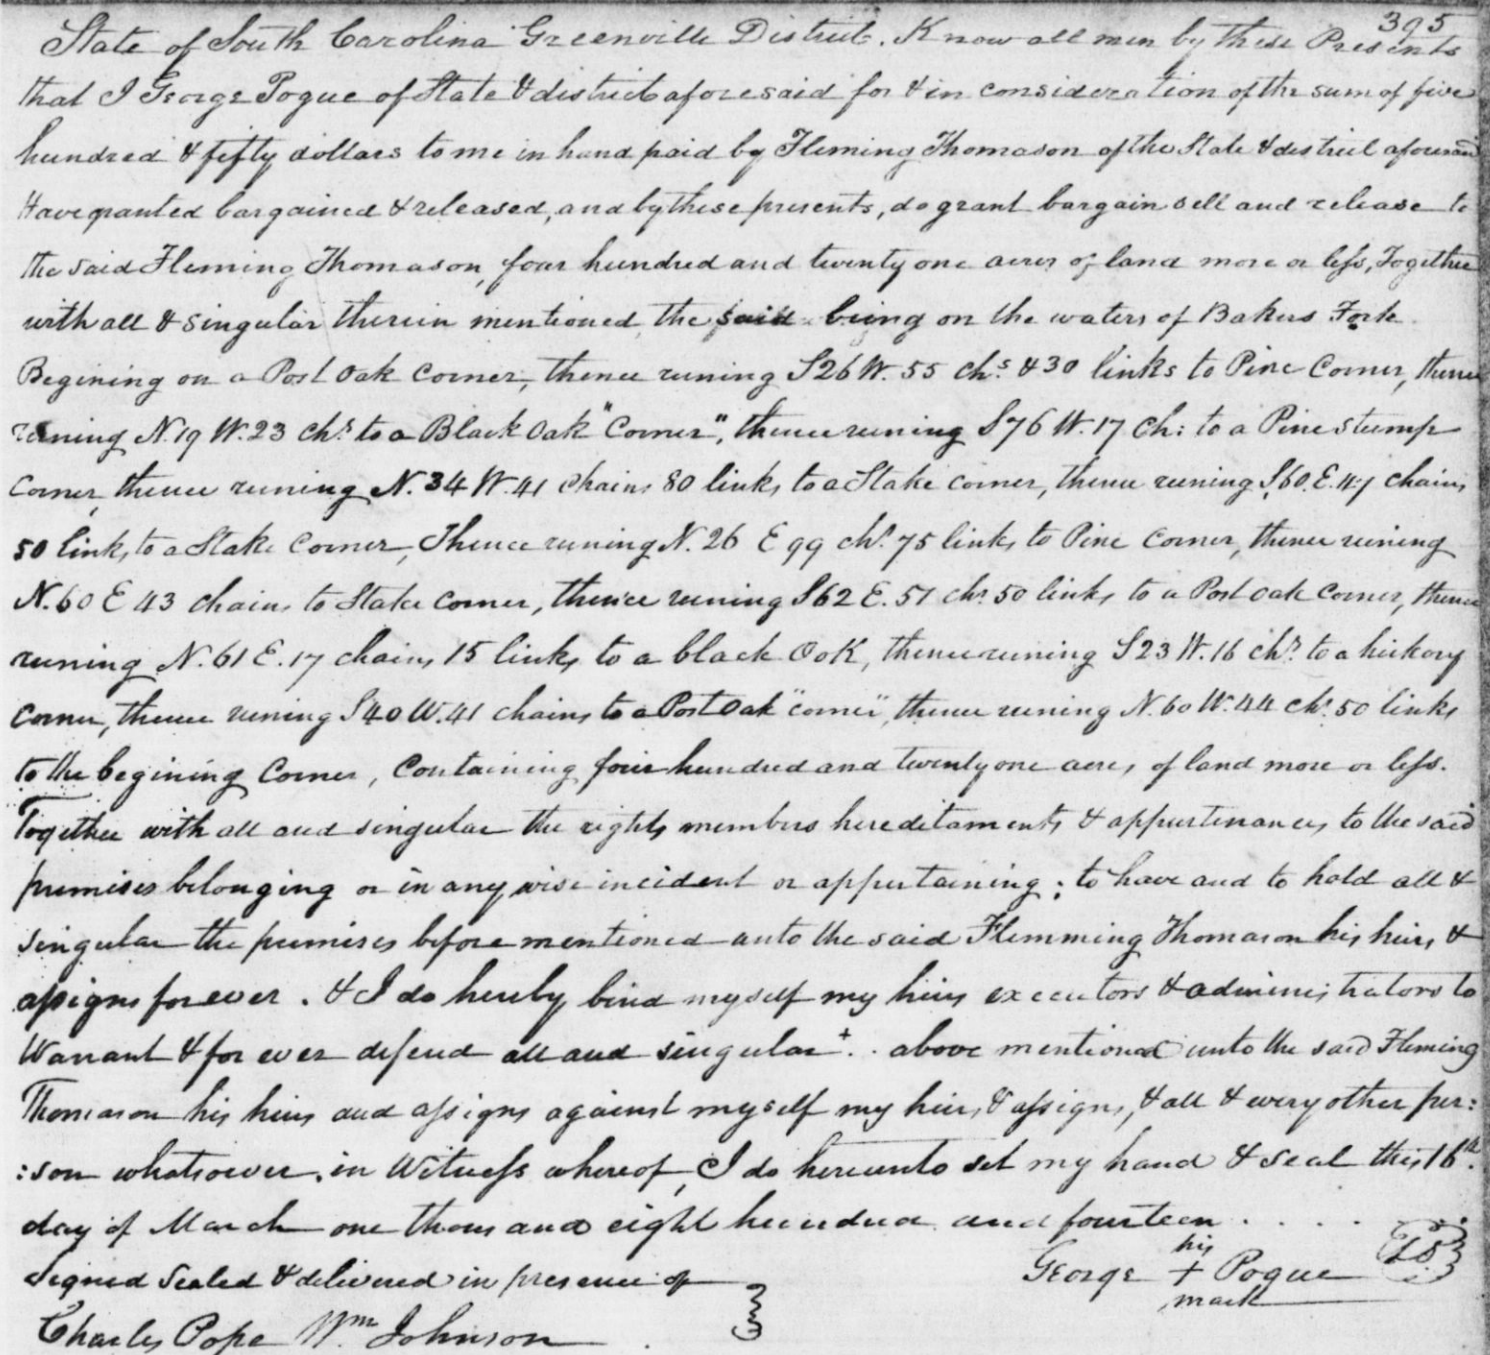 395
State of South Carolina Greenville District. Know all men by these Presents
that I George Pogue of State & district aforesaid for & in consideration of the sum of five
hundred & fifty dollars to me in hand paid by Fleming Thomason of the State & district aforesaid
Have granted bargained & released, and by these presents, do grant bargain sell and release to
the said Fleming Thomason, four hundred and twenty one acres of land more or less, Together
with all & singular therein mentioned, the said being on the waters of Bakers Fork
Begining on a Post Oak corner, thence runing S26 W. 55 chs & 30 links to Pine Corner, thence
runing N. 19 W. 23 chs to a Black Oak "Corner", thence runing S76 W. 17 Ch: to a Pine stump
Corner, thence runing N. 34 W. 41 chains 80 links to a Stake corner, thence runing S,60. E. 47 chains
50 links to a Stake Corner, Thence runing N. 26 E 99 chs 75 links to Pine Corner, thence runing
N. 60 E 43 chains to Stake corner, thence runing S62 E. 51 chs 50 links to a Post oak Corner, thence
runing N. 61 E. 17 chains 15 links to a black Oak, thence runing S23 W. 16 chs to a hickory
corner, thence runing S40 W. 41 chains to a Post Oak "corner", thence runing N. 60 W. 44 chs 50 links
to the begining Corner, Containing four hundred and twenty one acres of land more or less.
Together with all and singular the rights members hereditaments & appurtenances, to the said
premises belonging or in any wise incident or appertaining; to have and to hold all &
singular the premises before mentioned unto the said Flemming Thomason his heirs, &
assigns for ever. & I do hereby bind myself my heirs executors & administrators to
Warrant & for ever defend all and singular + . . above mentioned unto the said Fleming
Thomason his heirs and assigns against myself my heirs, & assigns, & all & every other per:
:son whatsoever. in Witness whereof, I do hereunto set my hand & seal this 16th
day of March one thousand eight hundred and fourteen . . . .
Signed Sealed & delivered in presence of
his
George + Pogue LS
mark
Charles Pope Wm Johnson